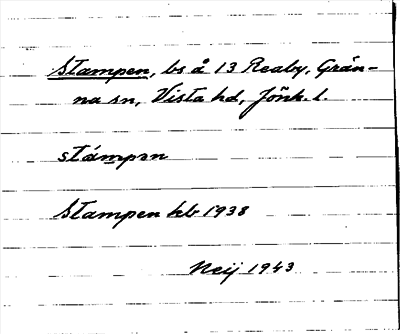 Stampen, bs å 13 Reaby, Grän-
na sn, Vista hd, Jönk. l.
stámpən
Stampen hb 1938
Neij 1943